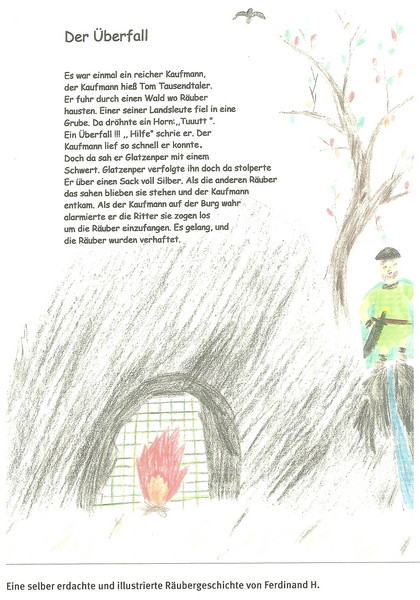 Der Überfall
Es war einmal ein reicher Kaufmann,
der Kaufmann hieß Tom Tausendtaler.
Er fuhr durch einen Wald wo Räuber
hausten. Einer seiner Landsleute fiel in eine
Grube. Da dröhnte ein Horn:,,Tuuutt ".
Ein Überfall !!! ,, Hilfe" schrie er. Der
Kaufmann lief so schnell er konnte.
Doch da sah er Glatzenper mit einem
Schwert. Glatzenper verfolgte ihn doch da stolperte
Er über einen Sack voll Silber. Als die anderen Räuber
das sahen blieben sie stehen und der Kaufmann
entkam. Als der Kaufmann auf der Burg wahr
alarmierte er die Ritter sie zogen los
um die Räuber einzufangen. Es gelang, und
die Räuber wurden verhaftet.
Eine selber erdachte und illustrierte Räubergeschichte von Ferdinand H.